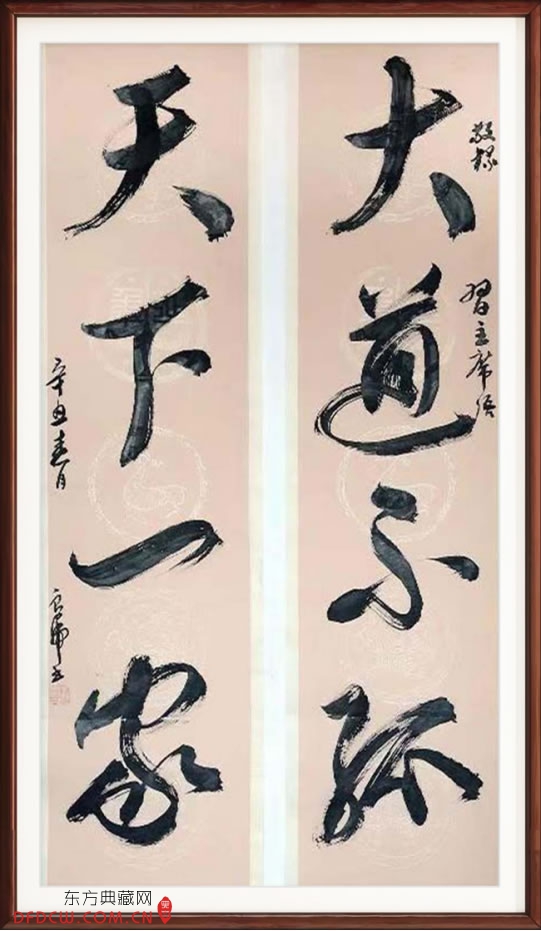 敬录
习主席语
大道不孤
天下一家
辛丑春月
东方典藏网
DFDCW.COM.CN